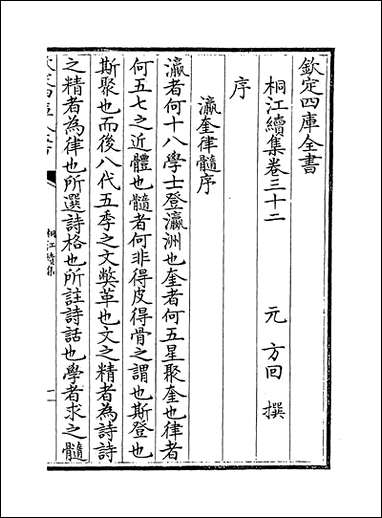 欽定四庫全書
桐江續集卷三十二
元 方回 撰
序
瀛奎律髓序
瀛者何十八學士登瀛洲也奎者何五星聚奎也律者
何五七之近體也髓者何非得皮得骨之謂也斯登也
斯聚也而後八代五季之文弊革也文之精者為詩詩
之精者為律也所選詩格也所註詩話也學者求之髓
欽定四庫全書
桐江續集
一